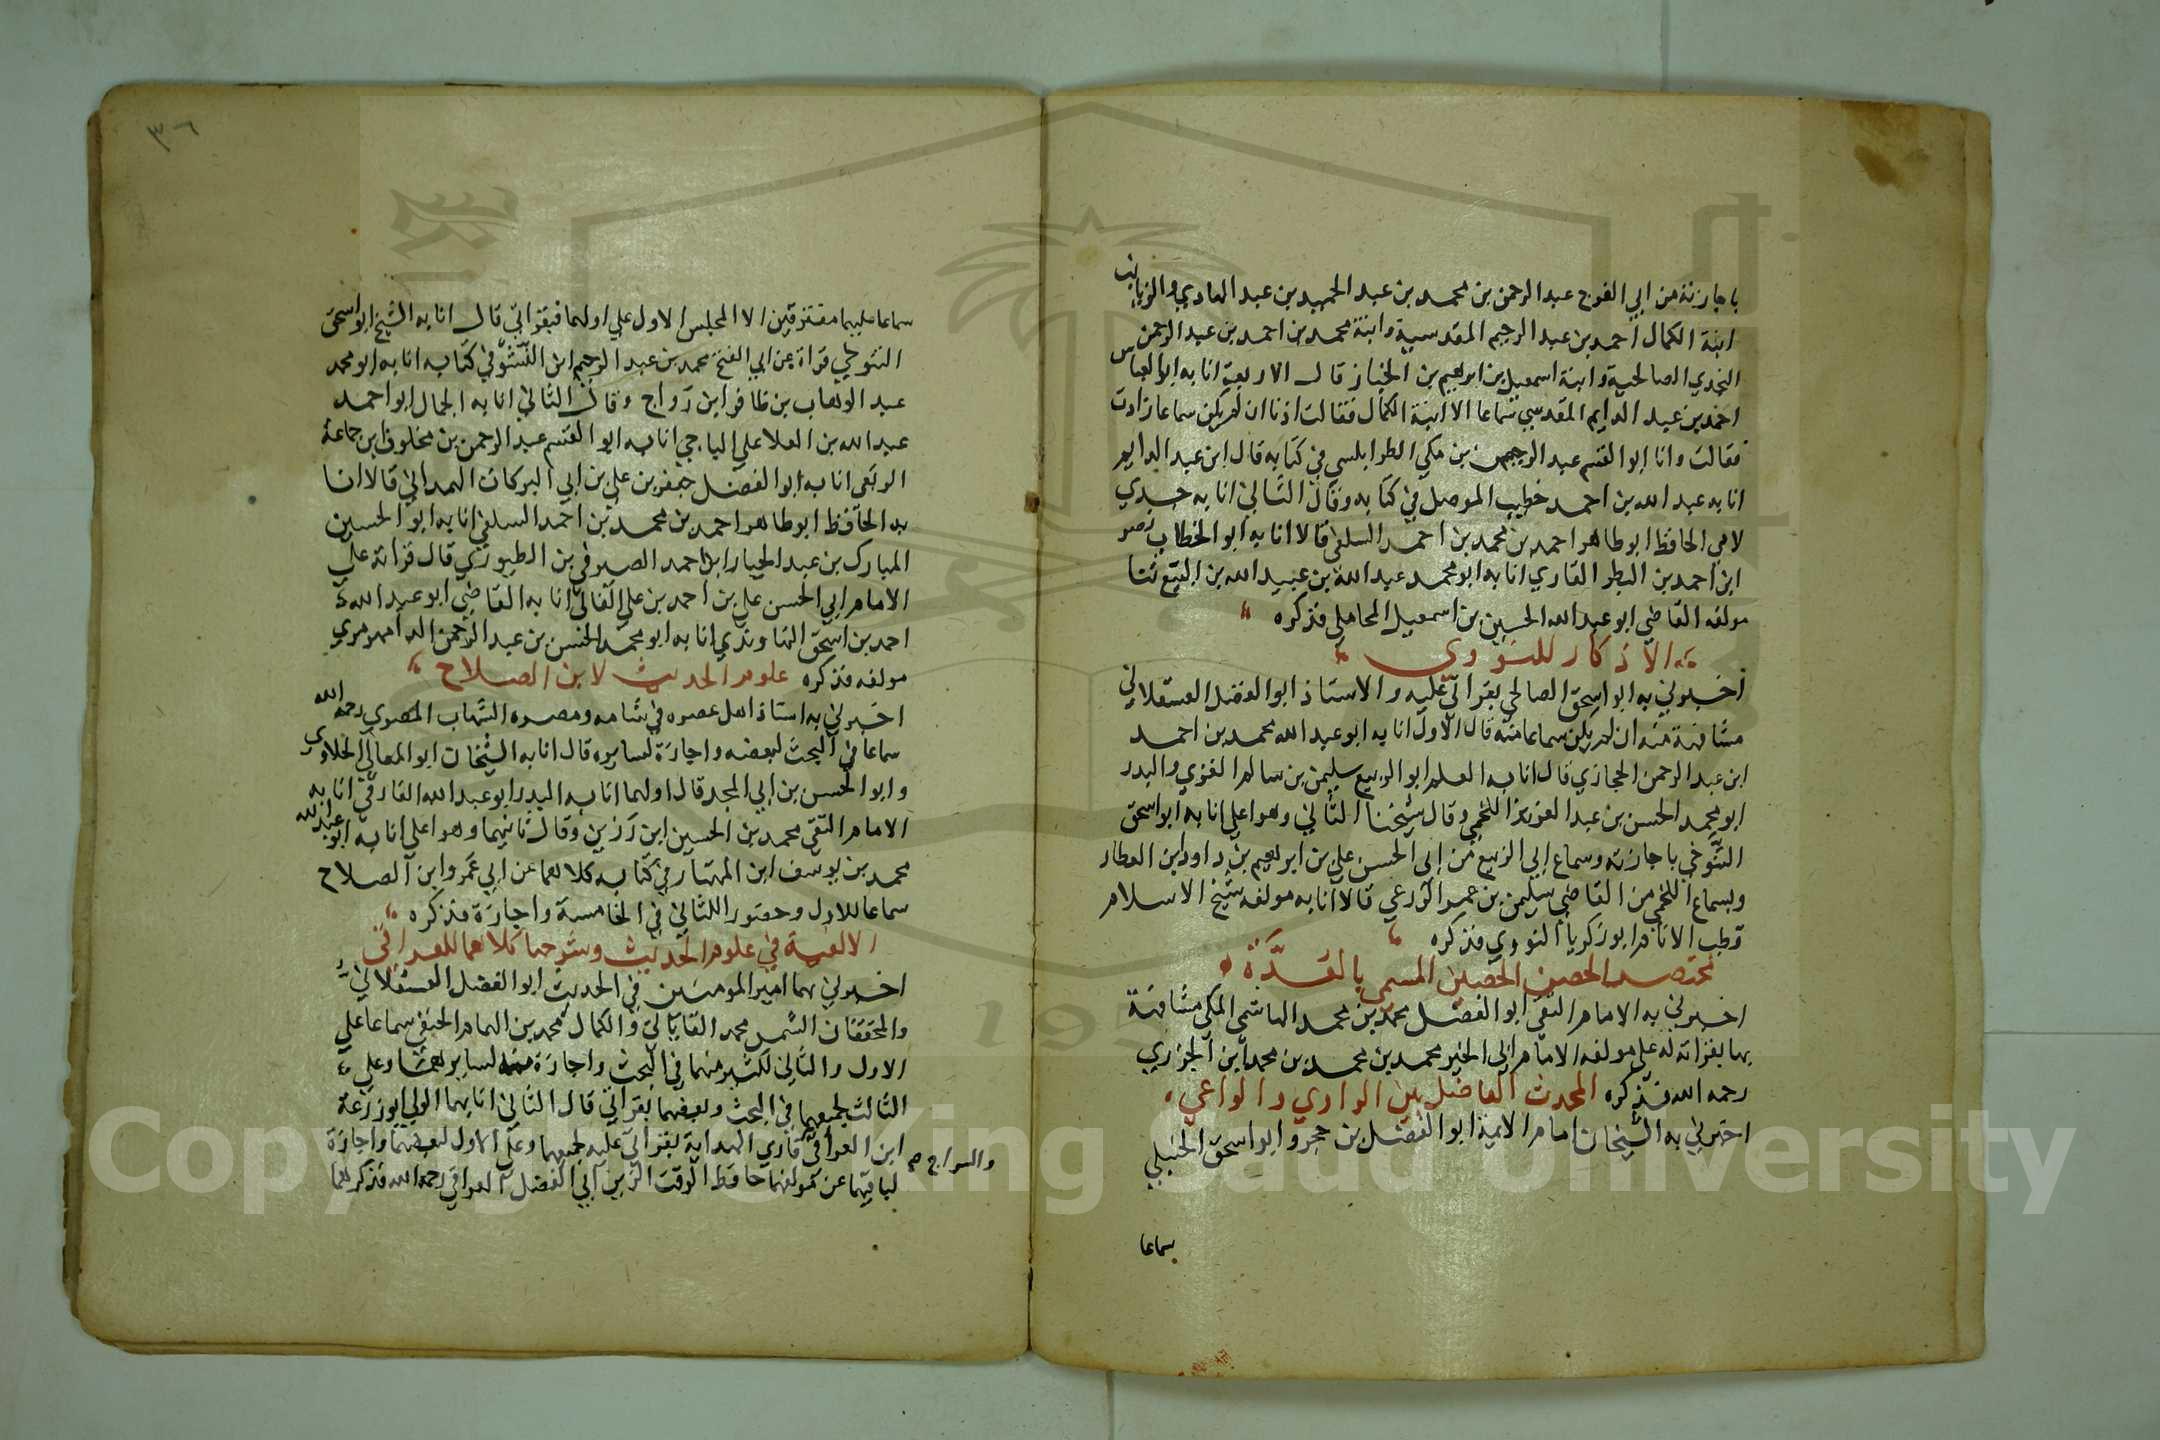 باجازته من ابي الفرج عبد الرحمن بن محمد بن عبد الحميد بن عبد الهادي والزيانب
ابنة الكمال احمد بن عبد الرحيم المقدسية وابنة محمد بن احمد بن عبد الرحمن
النجدي الصالحية وابنة اسمعيل بن ابراهيم بن الخباز قال الاربعة انا به ابو العباس
احمد بن عبد الدايم المقدسي سماعا الا ابنة الكمال فقالت اذنا ان لم يكن سماعا زادت
فقالت وانا ابو القسم عبد الرحمن بن مكي الطرابلسي في كتابه قال ابن عبد الدايم
انا به عبد الله بن احمد خطيب الموصل في كتابه وقال الثاني انا به جدي
لامي الحافظ ابو طاهر احمد بن محمد بن احمد السلفي قالا انا به ابو الخطاب نصر
ابن احمد بن البطر القاري انا به ابو محمد عبد الله بن عبيد الله بن البيع ثنا
مولفه القاضي ابو عبد الله الحسين بن اسمعيل المحاملي فذكره
الاذكار للنووي
اخبرني به ابو اسحق الصالحي بقراتي عليه والاستاذ ابو الفضل العسقلاني
مشافهة منه ان لم يكن سماعا منه قال الاول انا به ابو عبد الله محمد بن احمد
ابن عبد الرحمن الحجازي قال انا به العلم ابو الربيع سليمن بن سالم الغزي والبدر
ابو محمد الحسن بن عبد العزيز اللخمي وقال شيخنا الثاني وهو اعلي انا به ابو اسحق
التنوخي باجازته وسماع ابي الربيع من ابي الحسن علي بن ابراهيم بن داود ابن العطار
وبسماع اللخمي من القاضي سليمن بن عمر الزرعي قالا انا به مولفه شيخ الاسلام
قطب الانام ابو زكريا النووي فذكره
مختصر الحصن الحصين المسمي بالعدة
اخبرني به الامام التقي ابو الفضل محمد بن محمد الهاشمي المكي مشافهة
بها بقراته له علي مولفه الامام ابي الخير محمد بن محمد بن محمد ابن الجزري
رحمه الله فذكره المحدث الفاضل بين الراوي والواعي
اخبرني به الشيخان امام الايمة ابو الفضل بن حجر وابو اسحق الحنبلي
سماعا
٣٦
سماعا عليهما مفترقين الا المجلس الاول علي اولهما فبقراتي قال انا به الشيخ ابو اسحق
التنوخي قراة عن ابي الفتح محمد بن عبد الرحيم ابن النشو في كتابه انا به ابو محمد
عبد الوهاب بن ظافر ابن رواج وقال الثاني انا به الجمال ابو احمد
عبد الله بن العلا علي الباجي انا به ابو القسم عبد الرحمن بن مخلوف ابن جماعة
الربعي انا به ابو الفضل جعفر بن علي بن ابي البركات الهمداني قالا انا
به الحافظ ابو طاهر احمد بن محمد بن احمد السلفي انا به ابو الحسين
المبارك بن عبد الجبار ابن احمد الصيرفي بن الطيوري قال قراته علي
الامام ابي الحسن علي بن احمد بن علي الفالي انا به القاضي ابو عبد الله
احمد بن اسحق النهاوندي انا به ابو محمد الحسن بن عبد الرحمن الرامهرمزي
مولفه فذكره علوم الحديث لابن الصلاح
اخبرني به استاذ اهل عصره في شامه ومصره الشهاب المصري رحمه الله
سماعا في البحث لبعضه واجازة لسايره قال انا به الشيخان ابو المعالي الحلاوي
وابو الحسن بن ابي المجد قال اولهما انا به البدر ابو عبد الله الفارقي انا به
الامام التقي محمد بن الحسين ابن رزين وقال ثانيهما وهو اعلي انا به ابو عبد الله
محمد بن يوسف ابن المهتار في كتابه كلاهما عن ابي عمرو ابن الصلاح
سماعا للاول وحضورا للثاني في الخامسة واجازة فذكره
الالفية في علوم الحديث وشرحها كلاهما للعراقي
اخبرني بهما امير المومنين في الحديث ابو الفضل العسقلاني
والمحققان الشمس محمد القاياتي والكمال محمد بن الهمام الحنفي سماعا علي
الاول والثاني لكثير منهما في البحث واجازة منه لسايرهما وعلي
الثالث لجميعهما في البحث وبعضهما بقراتي قال الثاني انا بهما الولي ابو زرعة
ابن العراقي قاري الهداية بقراتي عليه لجميعهما وعلي الاول لبعضهما واجازة
والسراج صح
لباقيهما عن مولفهما حافظ الوقت الزين ابي الفضل العراقي رحمه الله فذكرهما
Copyright © King Saud University